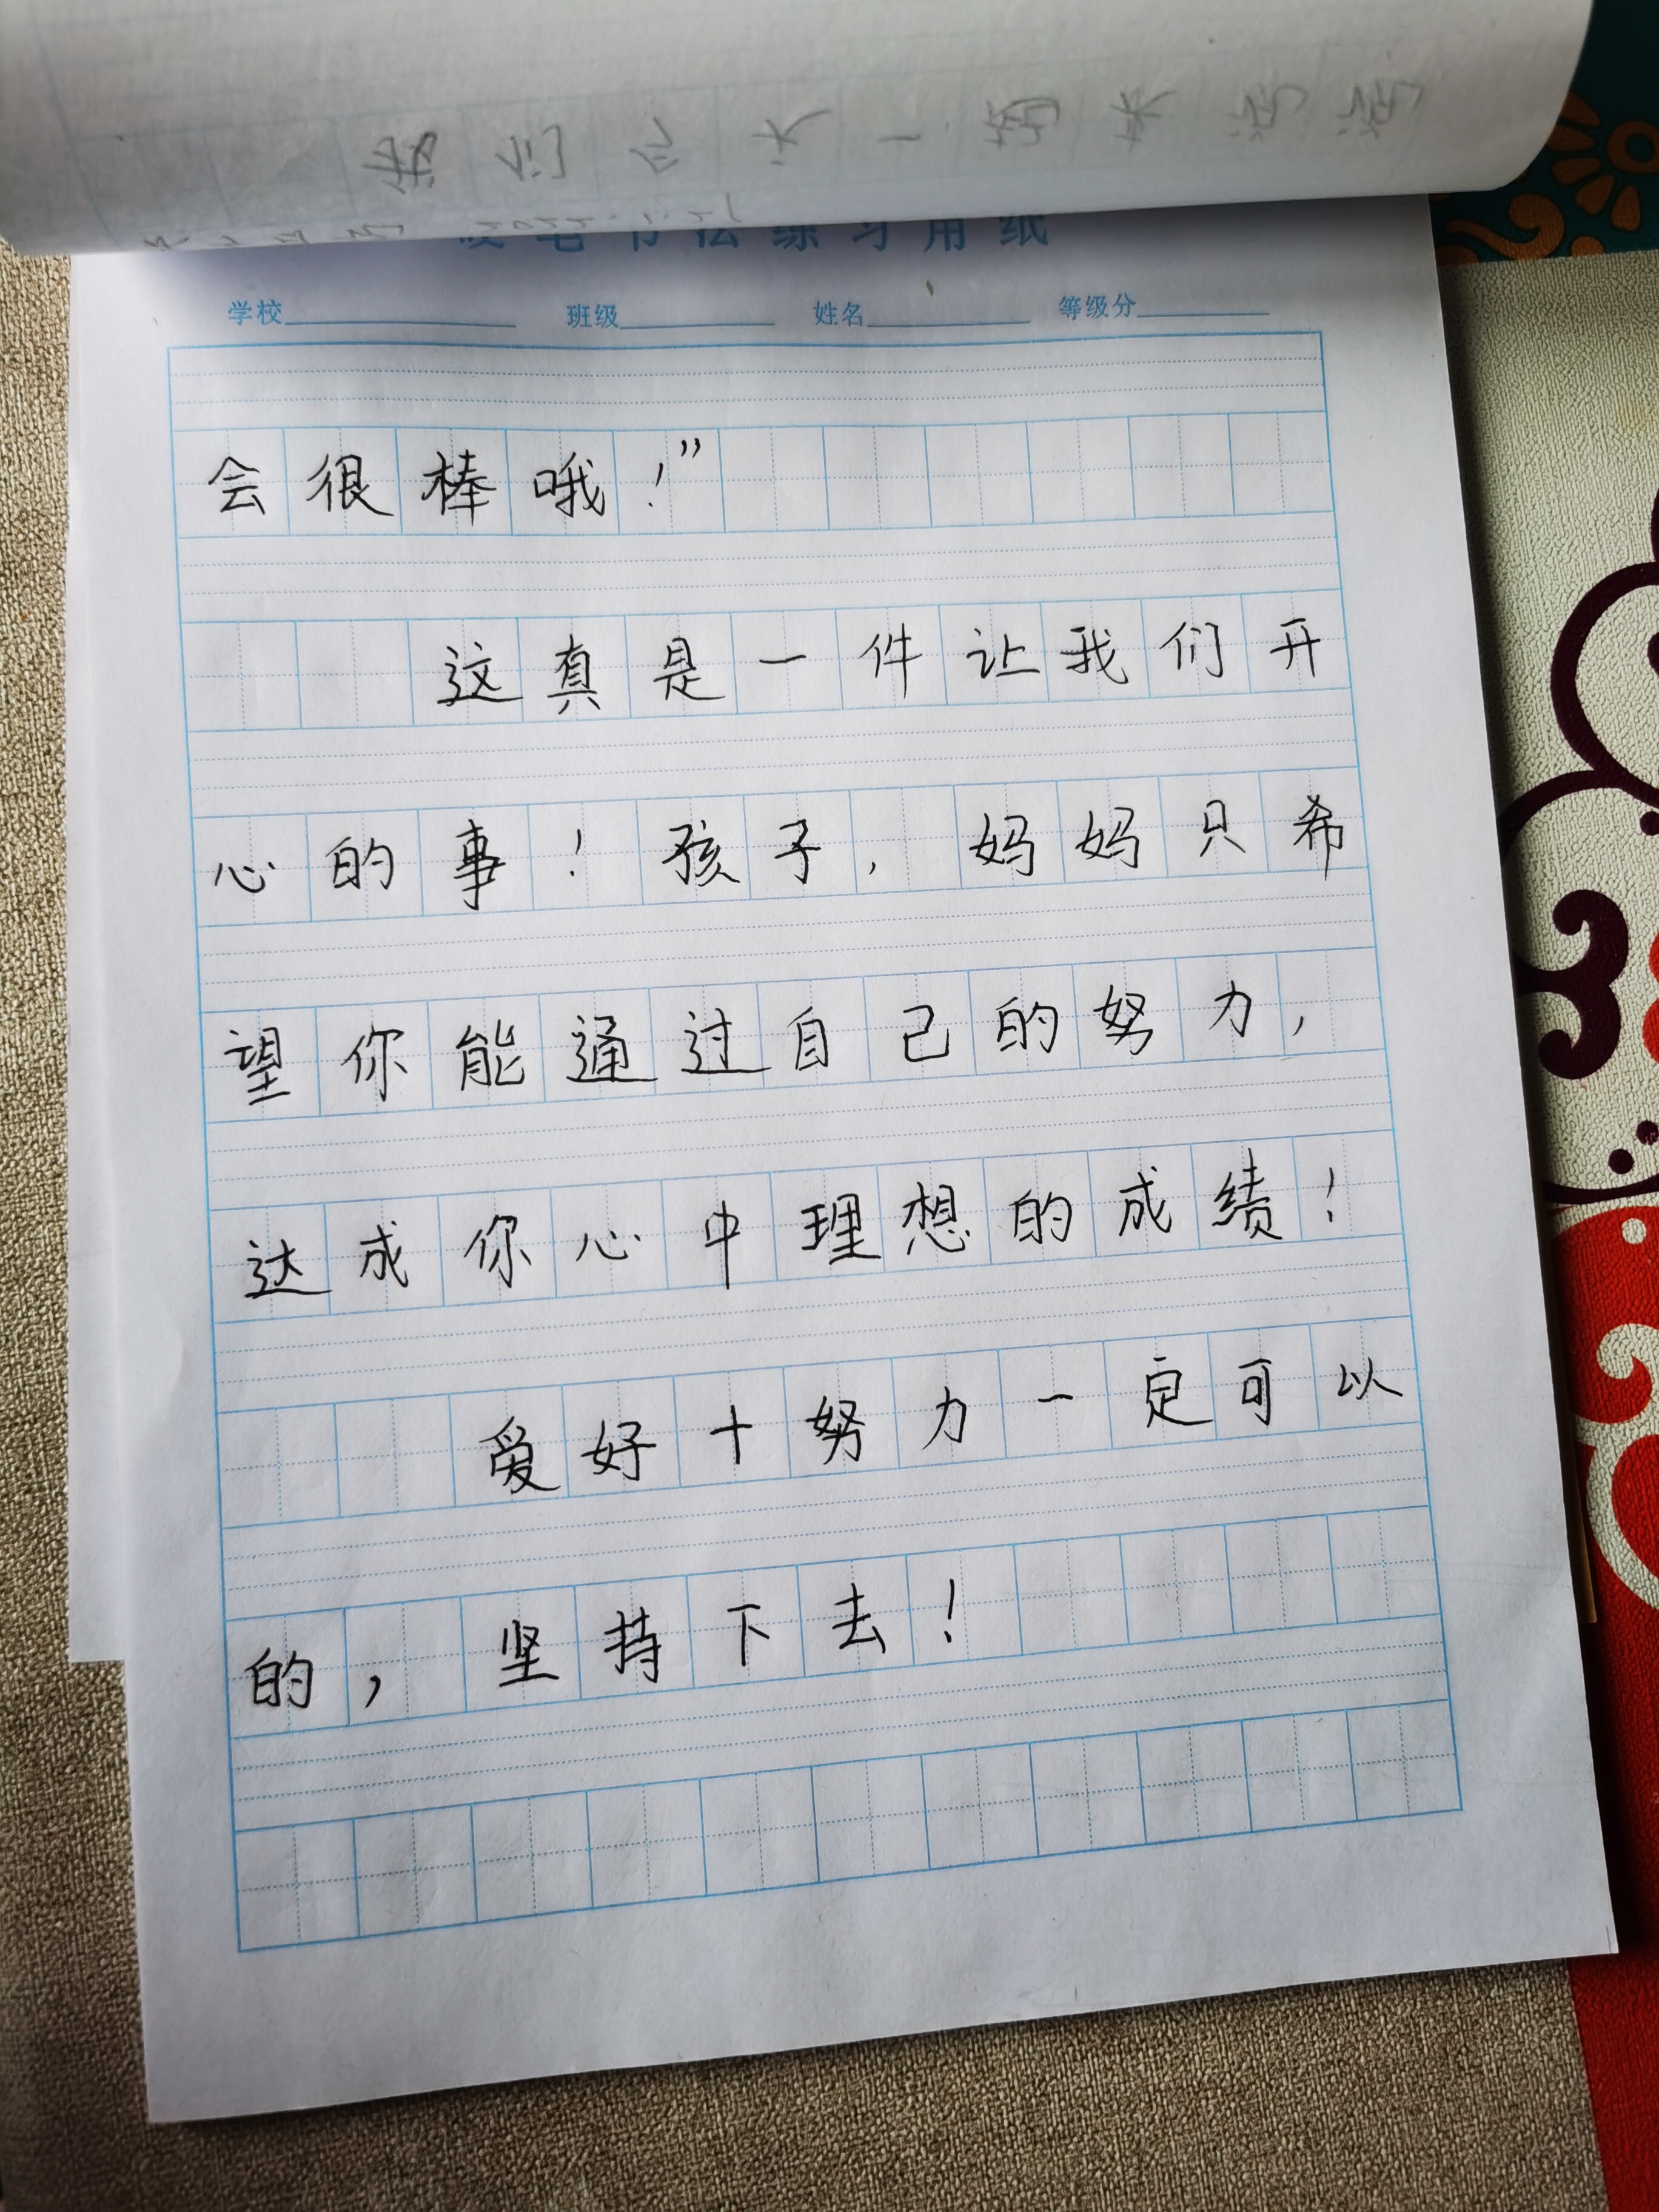 硬笔书法练习用纸
学校 班级 姓名 等级分
会很棒哦！”
这真是一件让我们开
心的事！孩子，妈妈只希
望你能通过自己的努力，
达成你心中理想的成绩！
爱好十努力一定可以
的，坚持下去！